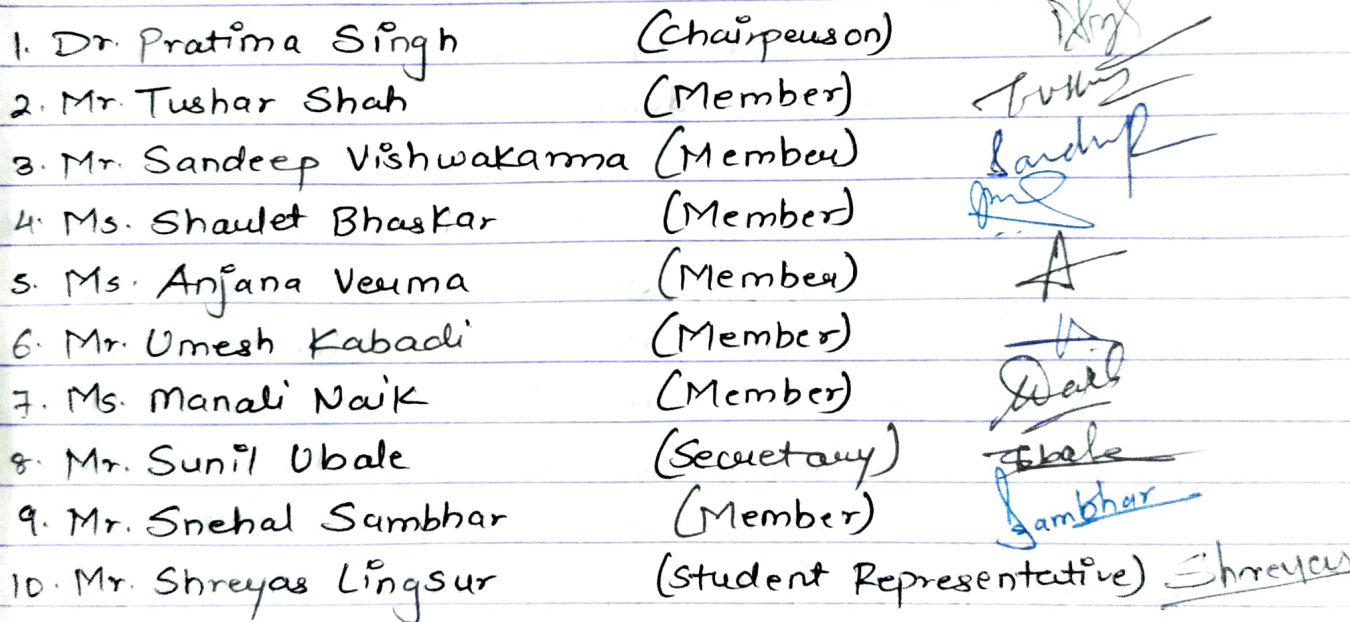 1. Dr. Pratima Singh (Chairperson)
2. Mr. Tushar Shah (Member)
3. Mr. Sandeep Vishwakarma (Member) Sandeep
4. Ms. Shaulet Bhaskar (Member)
5. Ms. Anjana Verma (Member) A
6. Mr. Umesh Kabadi (Member)
7. Ms. Manali Naik (Member) Naik
8. Mr. Sunil Ubale (Secretary) Ubale
9. Mr. Snehal Sambhar (Member) Sambhar
10. Mr. Shreyas Lingsur (Student Representative) Shreyas